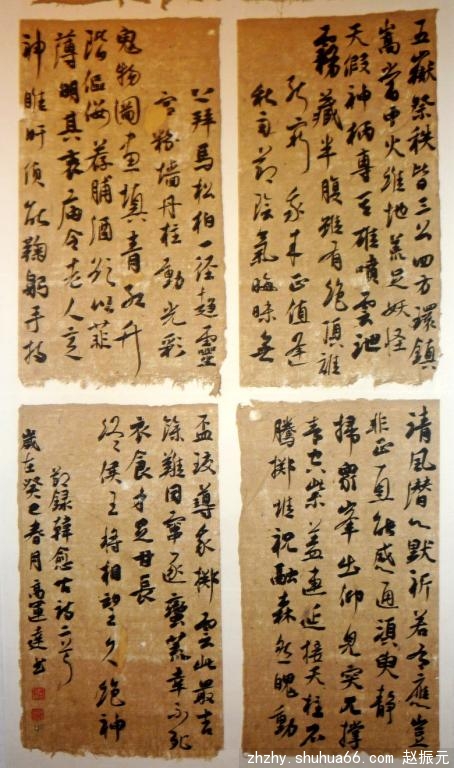 五嶽祭秩皆三公四方環鎮
嵩當中火維地荒足妖怪
天假神柄專其雄噴雲泄
霧藏半腹雖有絕頂誰
能窮我來正值逢
秋雨節陰氣晦昧無
清風潛心默祈若有應豈
非正直能感通須臾靜
掃眾峯出仰見突兀撐
青空紫蓋連延接天柱石
騰擲堆祝融森然魄動
下拜馬松柏一徑趨靈
宮粉墻丹柱動光彩
鬼物圖畫填青紅升
階傴僂薦脯酒欲以菲
薄明其衷廟令老人意
神睢盱偵能鞠躬手持
盃珓導我擲雲此最吉
餘難同竄逐蠻荒幸不死
衣食才足甘長
終侯王將相望久絕神
節録韓愈古詩二首
歲在癸巳春月高運達書
zhzhy.shuhua66.com 赵振元